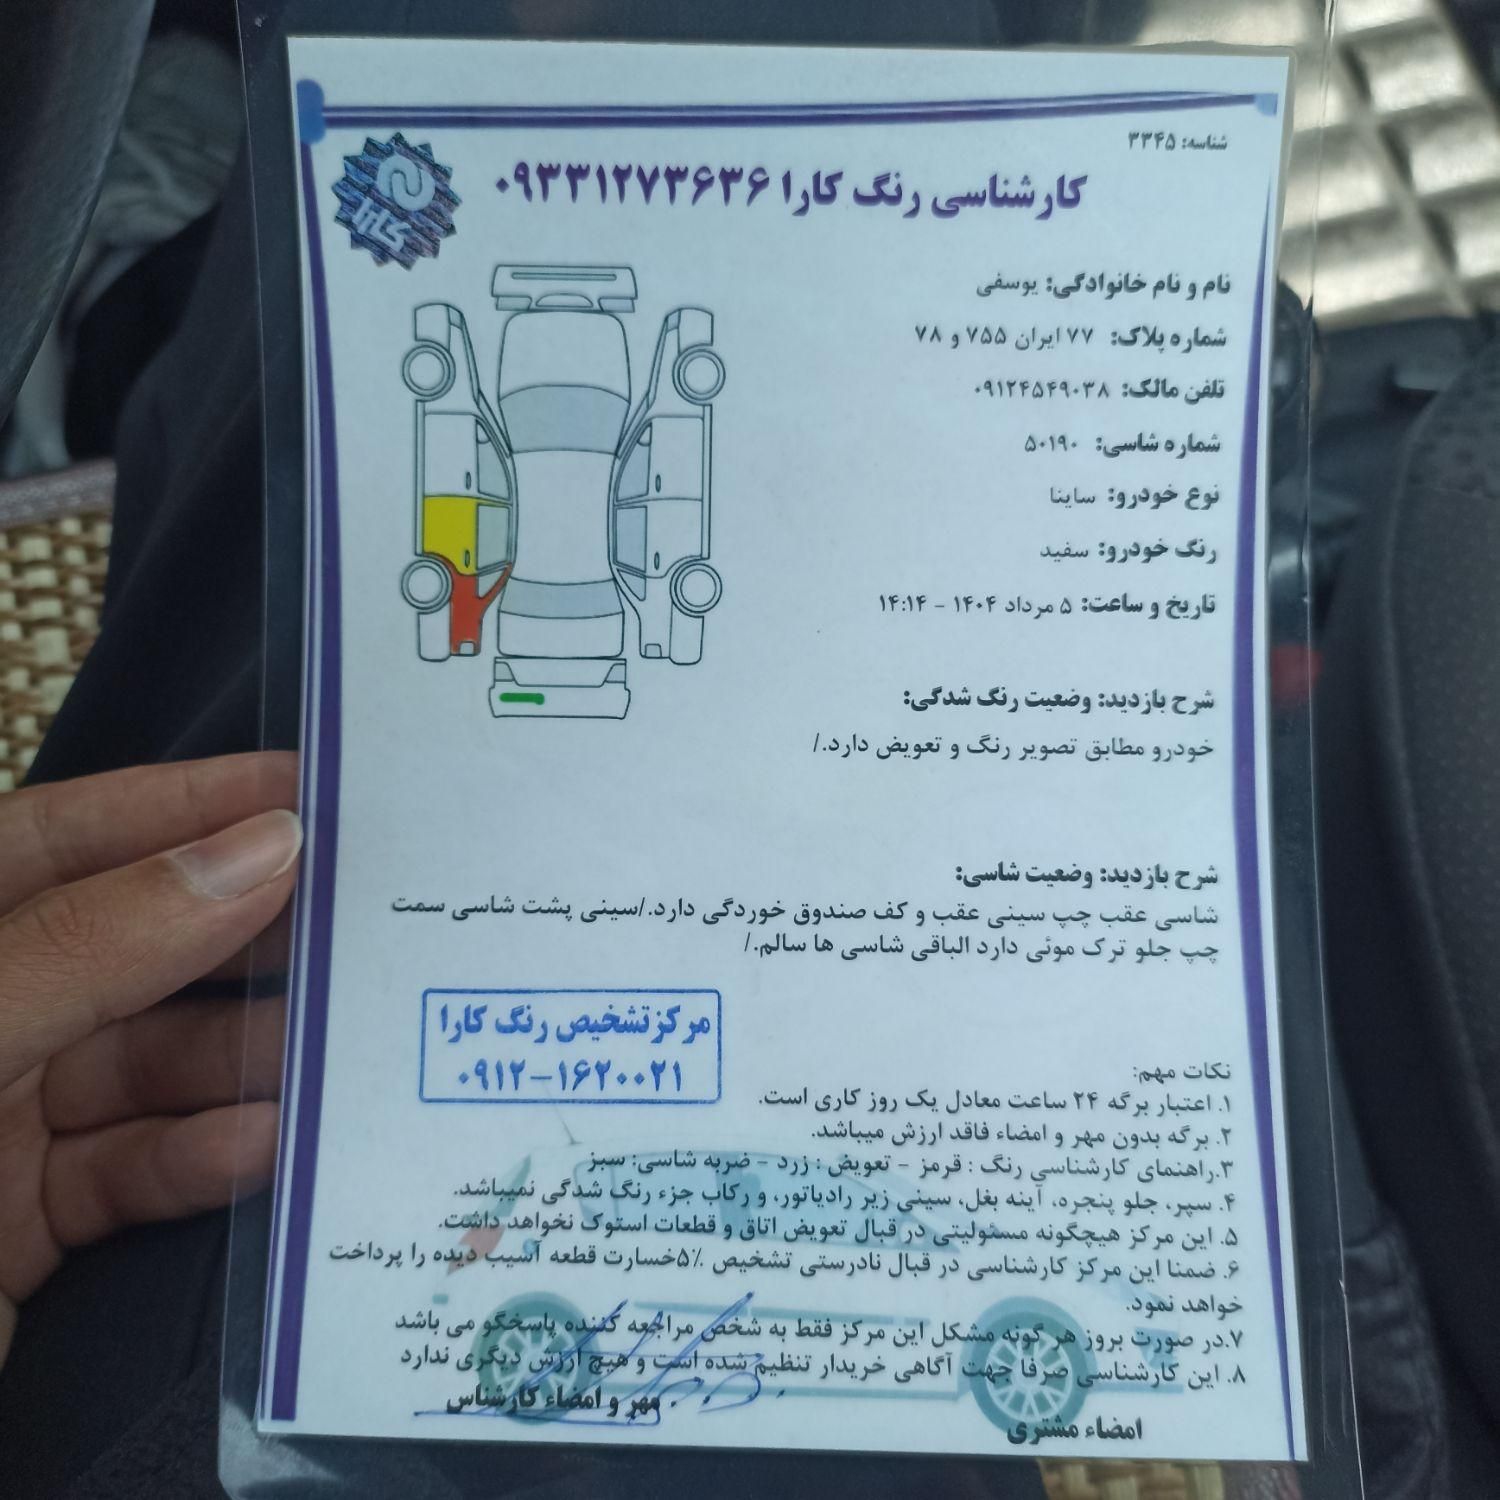 شناسه: ۳۳۴۵
کارشناسی رنگ کارا ۰۹۳۳۱۲۷۳۶۳۶
کارا
نام و نام خانوادگی: یوسفی
شماره پلاک: ۷۷ ایران ۷۵۵ و ۷۸
تلفن مالک: ۰۹۱۲۴۵۴۹۰۳۸
شماره شاسی: ۵۰۱۹۰
نوع خودرو: ساینا
رنگ خودرو: سفید
تاریخ و ساعت: ۵ مرداد ۱۴۰۴ - ۱۴:۱۴
شرح بازدید: وضعیت رنگ شدگی:
خودرو مطابق تصویر رنگ و تعویض دارد./
شرح بازدید: وضعیت شاسی:
شاسی عقب چپ سینی عقب و کف صندوق خوردگی دارد./سینی پشت شاسی سمت
چپ جلو ترک موئی دارد الباقی شاسی ها سالم./
مرکزتشخیص رنگ کارا
۰۹۱۲-۱۶۲۰۰۲۱
نکات مهم:
۱. اعتبار برگه ۲۴ ساعت معادل یک روز کاری است.
۲. برگه بدون مهر و امضاء فاقد ارزش میباشد.
۳.راهنمای کارشناسی رنگ : قرمز - تعویض : زرد - ضربه شاسی: سبز
۴. سپر، جلو پنجره، آینه بغل، سینی زیر رادیاتور، و رکاب جزء رنگ شدگی نمیباشد.
۵. این مرکز هیچگونه مسئولیتی در قبال تعویض اتاق و قطعات استوک نخواهد داشت.
۶. ضمنا این مرکز کارشناسی در قبال نادرستی تشخیص ۵٪خسارت قطعه آسیب دیده را پرداخت
خواهد نمود.
۷.در صورت بروز هر گونه مشکل این مرکز فقط به شخص مراجعه کننده پاسخگو می باشد
۸. این کارشناسی صرفا جهت آگاهی خریدار تنظیم شده است و هیچ ارزش دیگری ندارد
امضاء مشتری
مهر و امضاء کارشناس